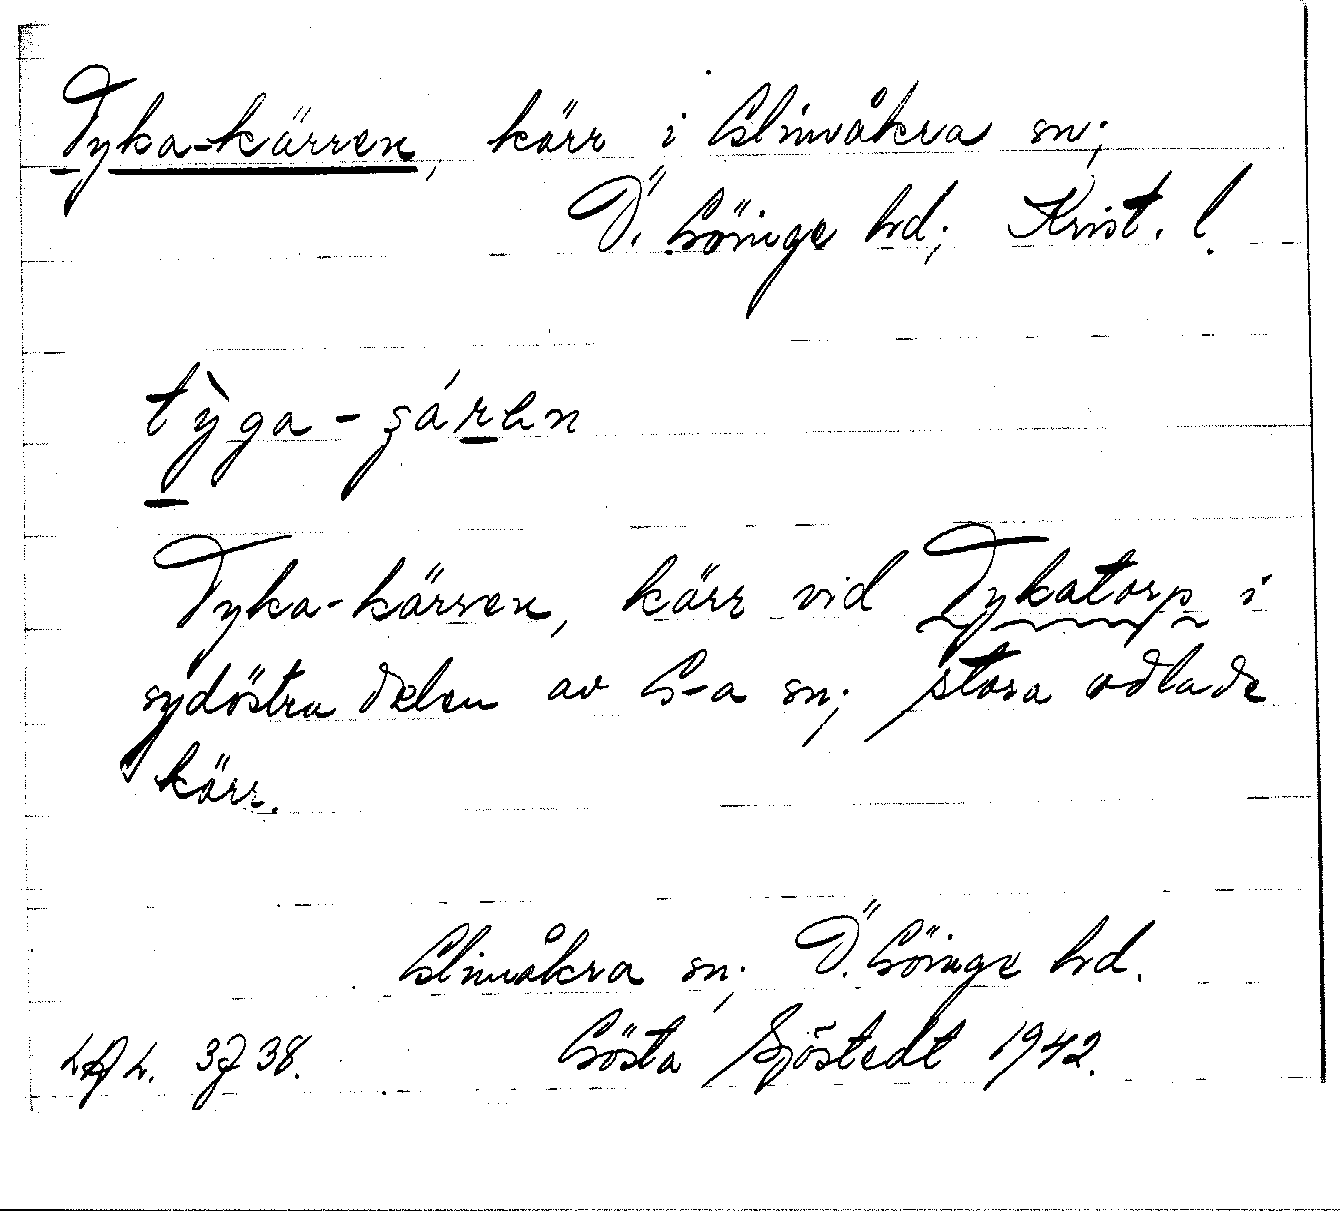 Tyka-kärren, kärr i Glimåkra sn;
Ö. Göinge hd; Krist. l.
tỳga-şárən
Tyka-kärren, kärr vid Tykatorp i
sydöstra delen av G-a sn; stora odlade
kärr.
Glimåkra sn; Ö. Göinge hd.
Gösta Sjöstedt 1942.